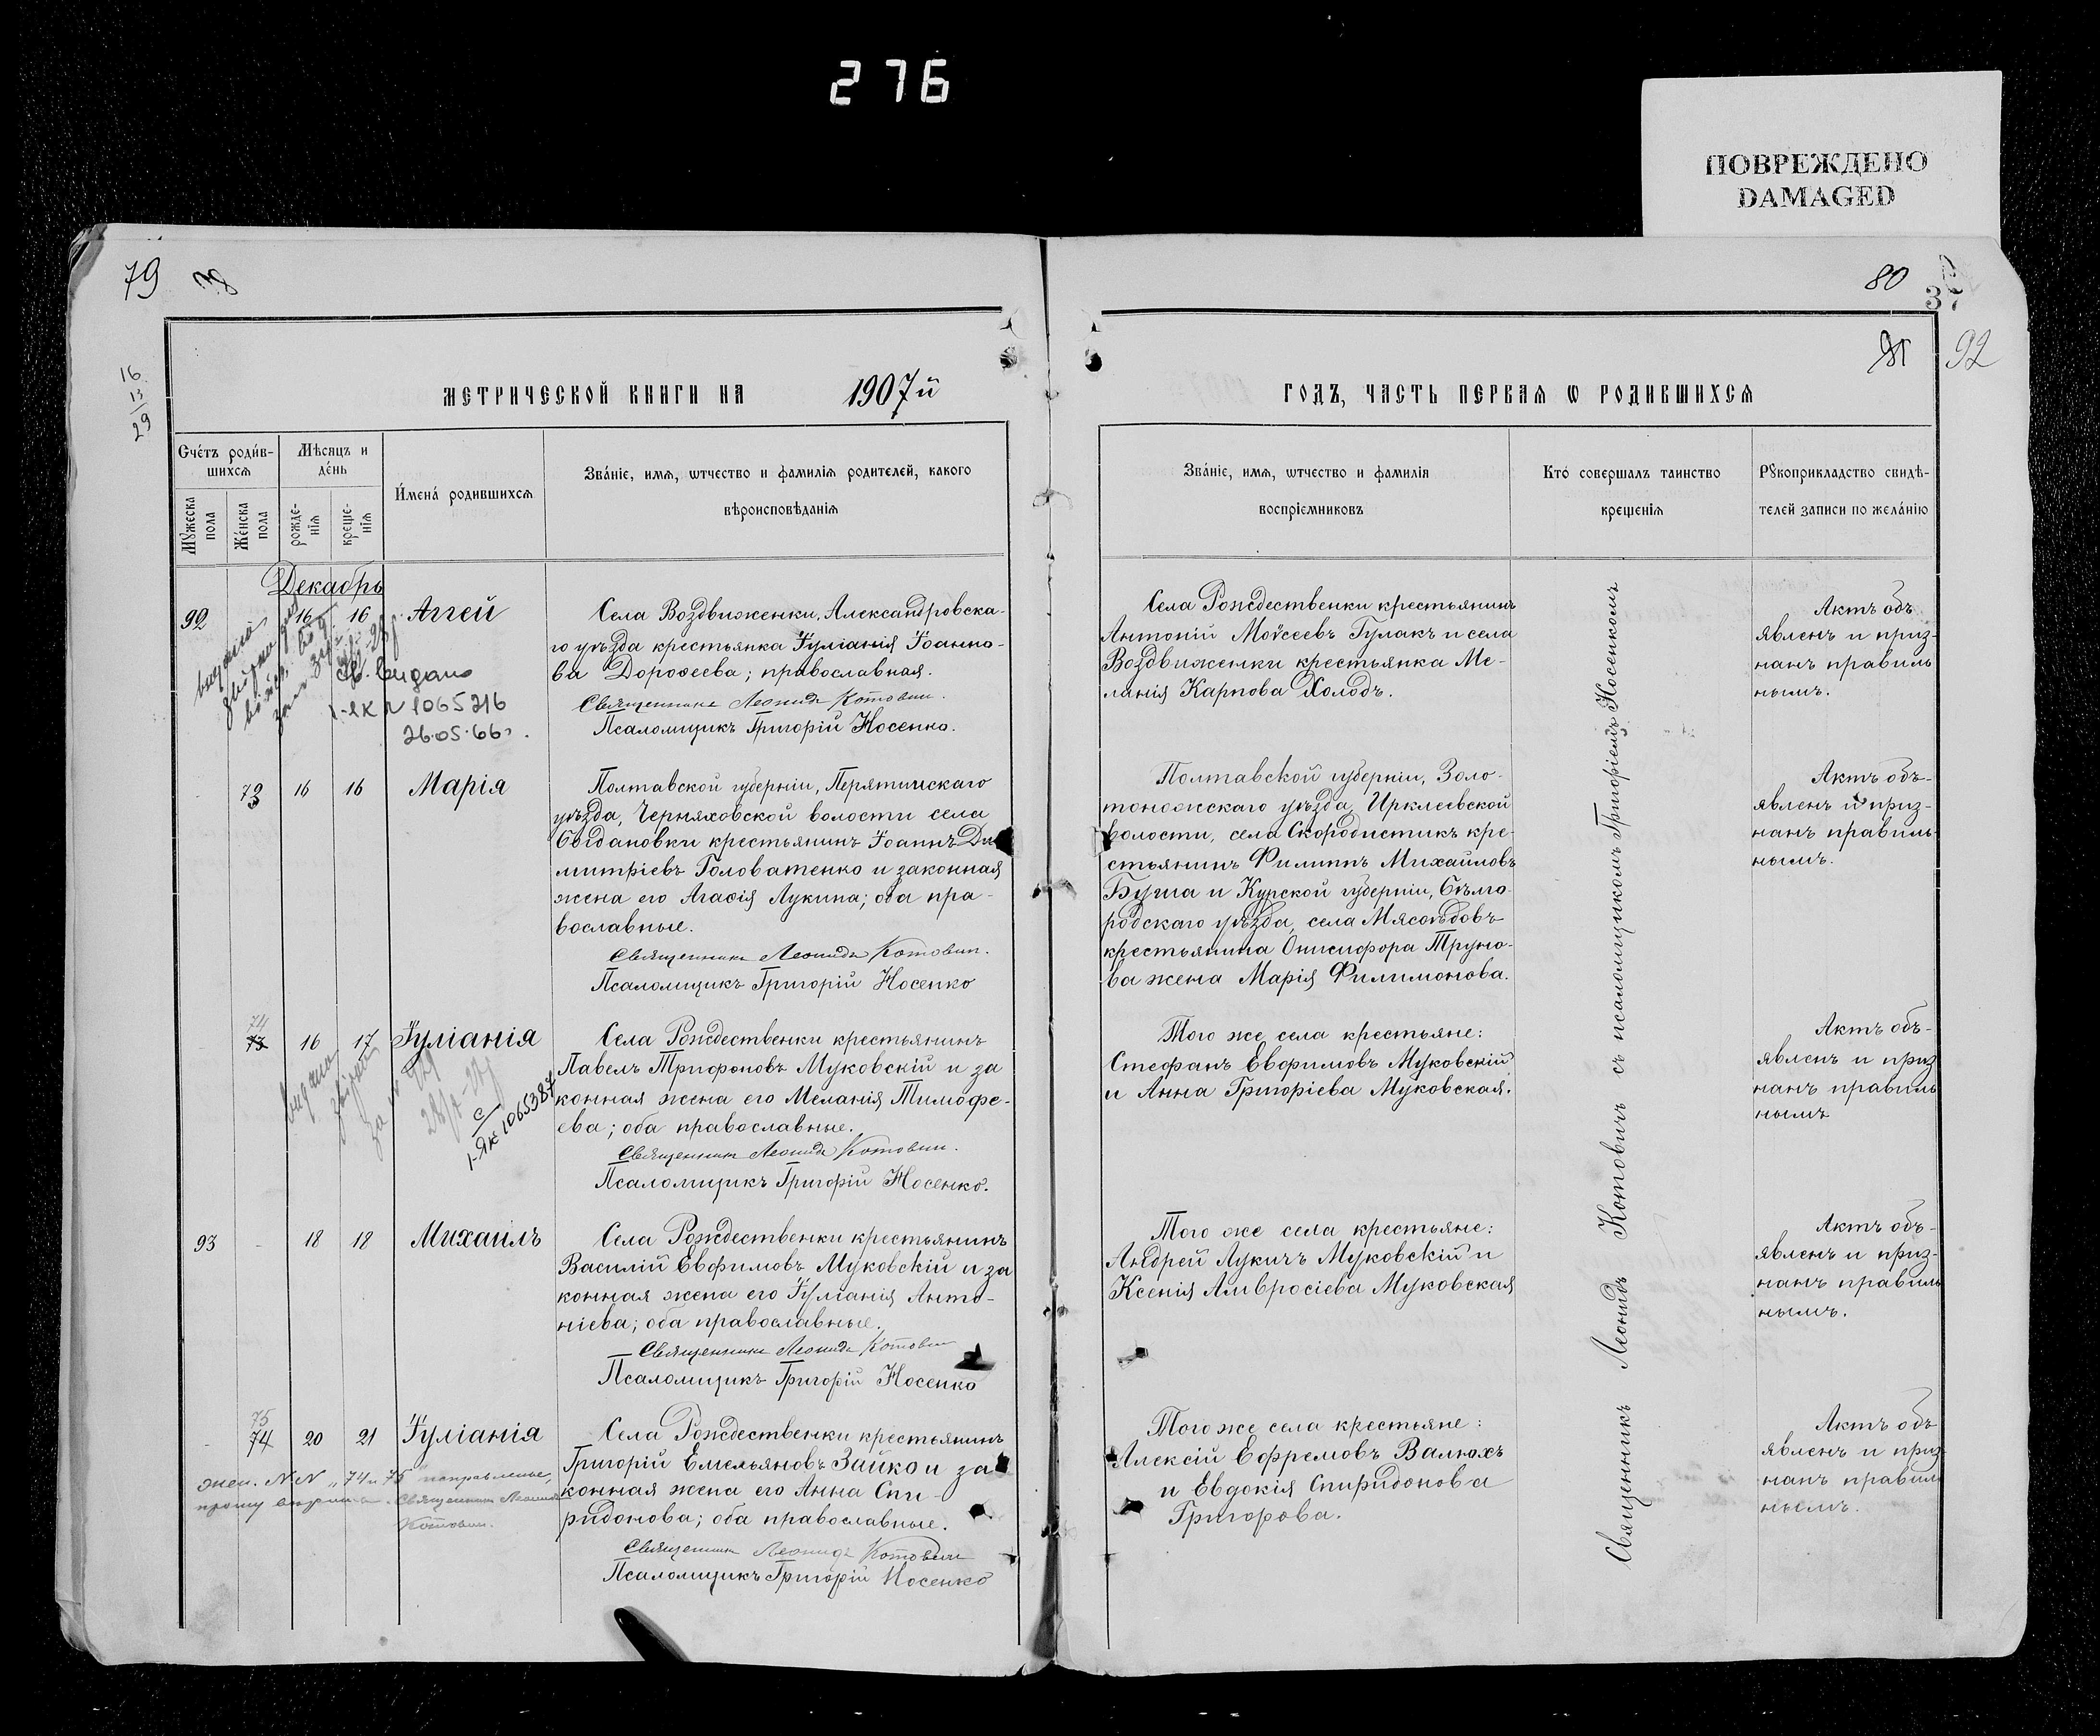 276
ПОВРЕЖДЕНО
DAMAGED
79
80
37
92
16
13
29
МЕТРИЧЕСКОЙ КНИГИ НА 1907й
ГОДЪ, ЧАСТЬ ПЕРВАѦ Ѡ РОДИВШИХСѦ
Счётъ роди́в-
шихсѧ
Мѣсѧцъ и
де́нь
Мꙋжеска
пола
Же́нска
пола
рожде-
нїѧ
креще-
нїѧ
И́мена́ родившихсѧ
Зва́нїе, имѧ, ѡтчество и фамилїѧ родителей, какого
вѣроисповѣданїѧ
Зва́нїе, имѧ, ѡтчество и фамилїѧ
воспрїемниковъ
Кто́ совершалъ таинство
крещенїѧ
Рꙋкоприкладство свидѣ-
телей записи по жела́нїю
Декабрь
92 16 16 Аггей
Села Воздвиженки, Александровска-
го уѣзда крестьянка Іуліанія Іоанно-
ва Дороѳеева; православная.
Священникъ Леонидъ Котовичъ.
Псаломщикъ Григорій Носенко.
Села Рождественки крестьянинъ
Антоній Моѵсеевъ Гулакъ и села
Воздвиженки крестьянка Ме-
ланія Карпова Холодъ.
Актъ объ
явленъ и приз-
нанъ правиль
нымъ.
видано
1065216
26.05.66
73 16 16 Марія
Полтавской губерніи, Пирятинскаго
уѣзда, Черняховской волости села
Богдановки крестьянинъ Іоаннъ Ди
митріевъ Головатенко и законная
жена его Агаѳія Лукина; оба пра-
вославные.
Священникъ Леонидъ Котовичъ.
Псаломщикъ Григорій Носенко
Полтавской губерніи, Золо-
тоношскаго уѣзда, Ирклеевской
волости, села Скородистикъ кре-
стьянинъ Филиппъ Михаиловъ
Буша и Курской губерніи, Бѣлго-
родскаго уѣзда, села Мясоѣдовъ
крестьянина Онисифора Труно-
ва жена Марія Филимонова.
Актъ объ-
явленъ и приз-
нанъ правиль-
нымъ.
74
73 16 17 Іуліанія
Села Рождественки крестьянинъ
Павелъ Трифоновъ Муковскій и за
конная жена его Меланія Тимофе-
ева; оба православные.
Священникъ Леонидъ Котовичъ.
Псаломщикъ Григорій Носенко.
Того же села крестьяне:
Стефанъ Евфимовъ Муковскій
и Анна Григоріева Муковская.
Актъ объ-
явленъ и приз
нанъ правиль
нымъ
видана
1065387
93 - 18 18 Михаилъ
Села Рождественки крестьянинъ
Василій Евфимовъ Муковскій и за
конная жена его Іуліанія Анто-
ніева; оба православные.
Священникъ Леонидъ Котовичъ
Псаломщикъ Григорій Носенко
Того же села крестьяне:
Андрей Лукичъ Муковскій и
Ксенія Амвросіева Муковская
Актъ объ-
явленъ и приз-
нанъ правиль
нымъ.
75
74 20 21 Іуліанія
Села Рождественки крестьянинъ
Григорій Емельяновъ Зайко и за
конная жена его Анна Спи-
ридонова; оба православные.
Священникъ Леонидъ Котовичъ
Псаломщикъ Григорій Носенко
Того же села крестьяне:
Алексій Ефремовъ Валюхъ
и Евдокія Спиридонова
Григорова.
Актъ объ
явленъ и приз-
нанъ правил
нымъ.
жен. NN „74 и 75 исправленье,
прошу вѣрить. Священникъ Леонидъ
Котовичъ.
Священникъ Леонидъ Котовичъ съ псаломщикомъ Григоріемъ Носенкомъ